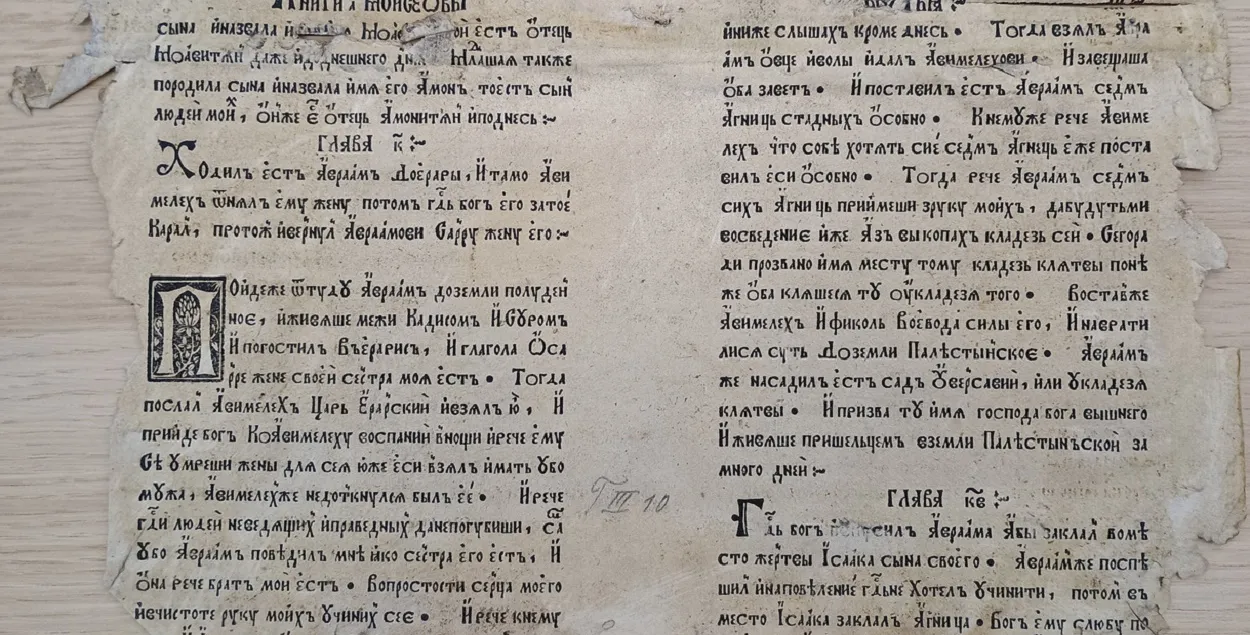 Книги а҃ Мойсеовы
сына иназвала и Моа ой естъ ѿтець
Моавитѧн даже идоднешнего дн Млашаѧ также
породила сына иназвала имѧ его Амонъ тоестъ сын
людей мои, онже е отець Амонитѧн иподнесь :~
ГЛАВА к҃ :~
Ходилъ естъ Авраамъ доерары, Итамо Ави
мелехъ ѿнялъ ему жену потомъ гдь богъ его затое
Каралъ, протож ивернул Авраамови Сарру жену его :~
Пойдеже ѿтуду Авраамъ доземли полуден
ное, иживѧше межи Кадисомъ ИСуромъ
Ипогостилъ Въерарисъ, Иглагола Оса
рре жене своей сестра моѧ естъ • Тогда
послал Авимелехъ Царь Ерарский ивзѧлъ ю, И
прийде богъ КоАвимелеху воспаний вночи ирече ему
Се умреши жены для сеѧ юже еси взѧлъ имать убо
мужа, Авимелехже недоткнулсѧ былъ ее • Ирече
гди людей неведящих иправедных данепогубиши, са
Убо Авраамъ поведилъ мне іако сестра его естъ, И
Она рече братъ мой естъ • Вопростости серца моего
ивчистоте руку моих учиних сее • Ирече кнему
бытыѧ :~
ииниже слышахъ кроме днесь • Тогда взѧлъ Авра
амъ овце иволы идалъ Авимелехови • Изавещаша
Оба заветъ • Ипоставилъ естъ Авраамъ седмъ
Агницъ стадныхъ особно • Кнемуже рече Авиме
лехъ что собѣ хотѧть сие седмъ Агнець еже поста
вилъ еси особно • Тогда рече Авраамъ седмъ
сихъ Агницъ приймеши зруку моихъ, дабудутьми
восведение иже Азъ выкопахъ кладезь сей • Сегора
ди прозвано имѧ месту тому кладезь клѧтвы поне
же Оба клѧшесѧ ту оукладезѧ того • Воставже
Авимелехъ Ификолъ Воевода силы его, Инаврати
лисѧ суть Доземли Палѣстынское • Авраамъ
же насадилъ естъ садъ Уверсавий, или укладезѧ
клѧтвы • Ипризва ту имѧ господа бога вышнего
Иживѧше пришельцемъ вземли Палѣстынъской за
много дней :~
ГЛАВА к҃в :~
Гдь богъ силъ Авраама Абы заклал воме
сто жертвы Ісаака сына своего • Авраамже поспѣ
шил инаповѣление гдьне Хотел учинити, потом въ
место Ісаака заклалъ Агница • Богъ ему слюбу по
Г III 10